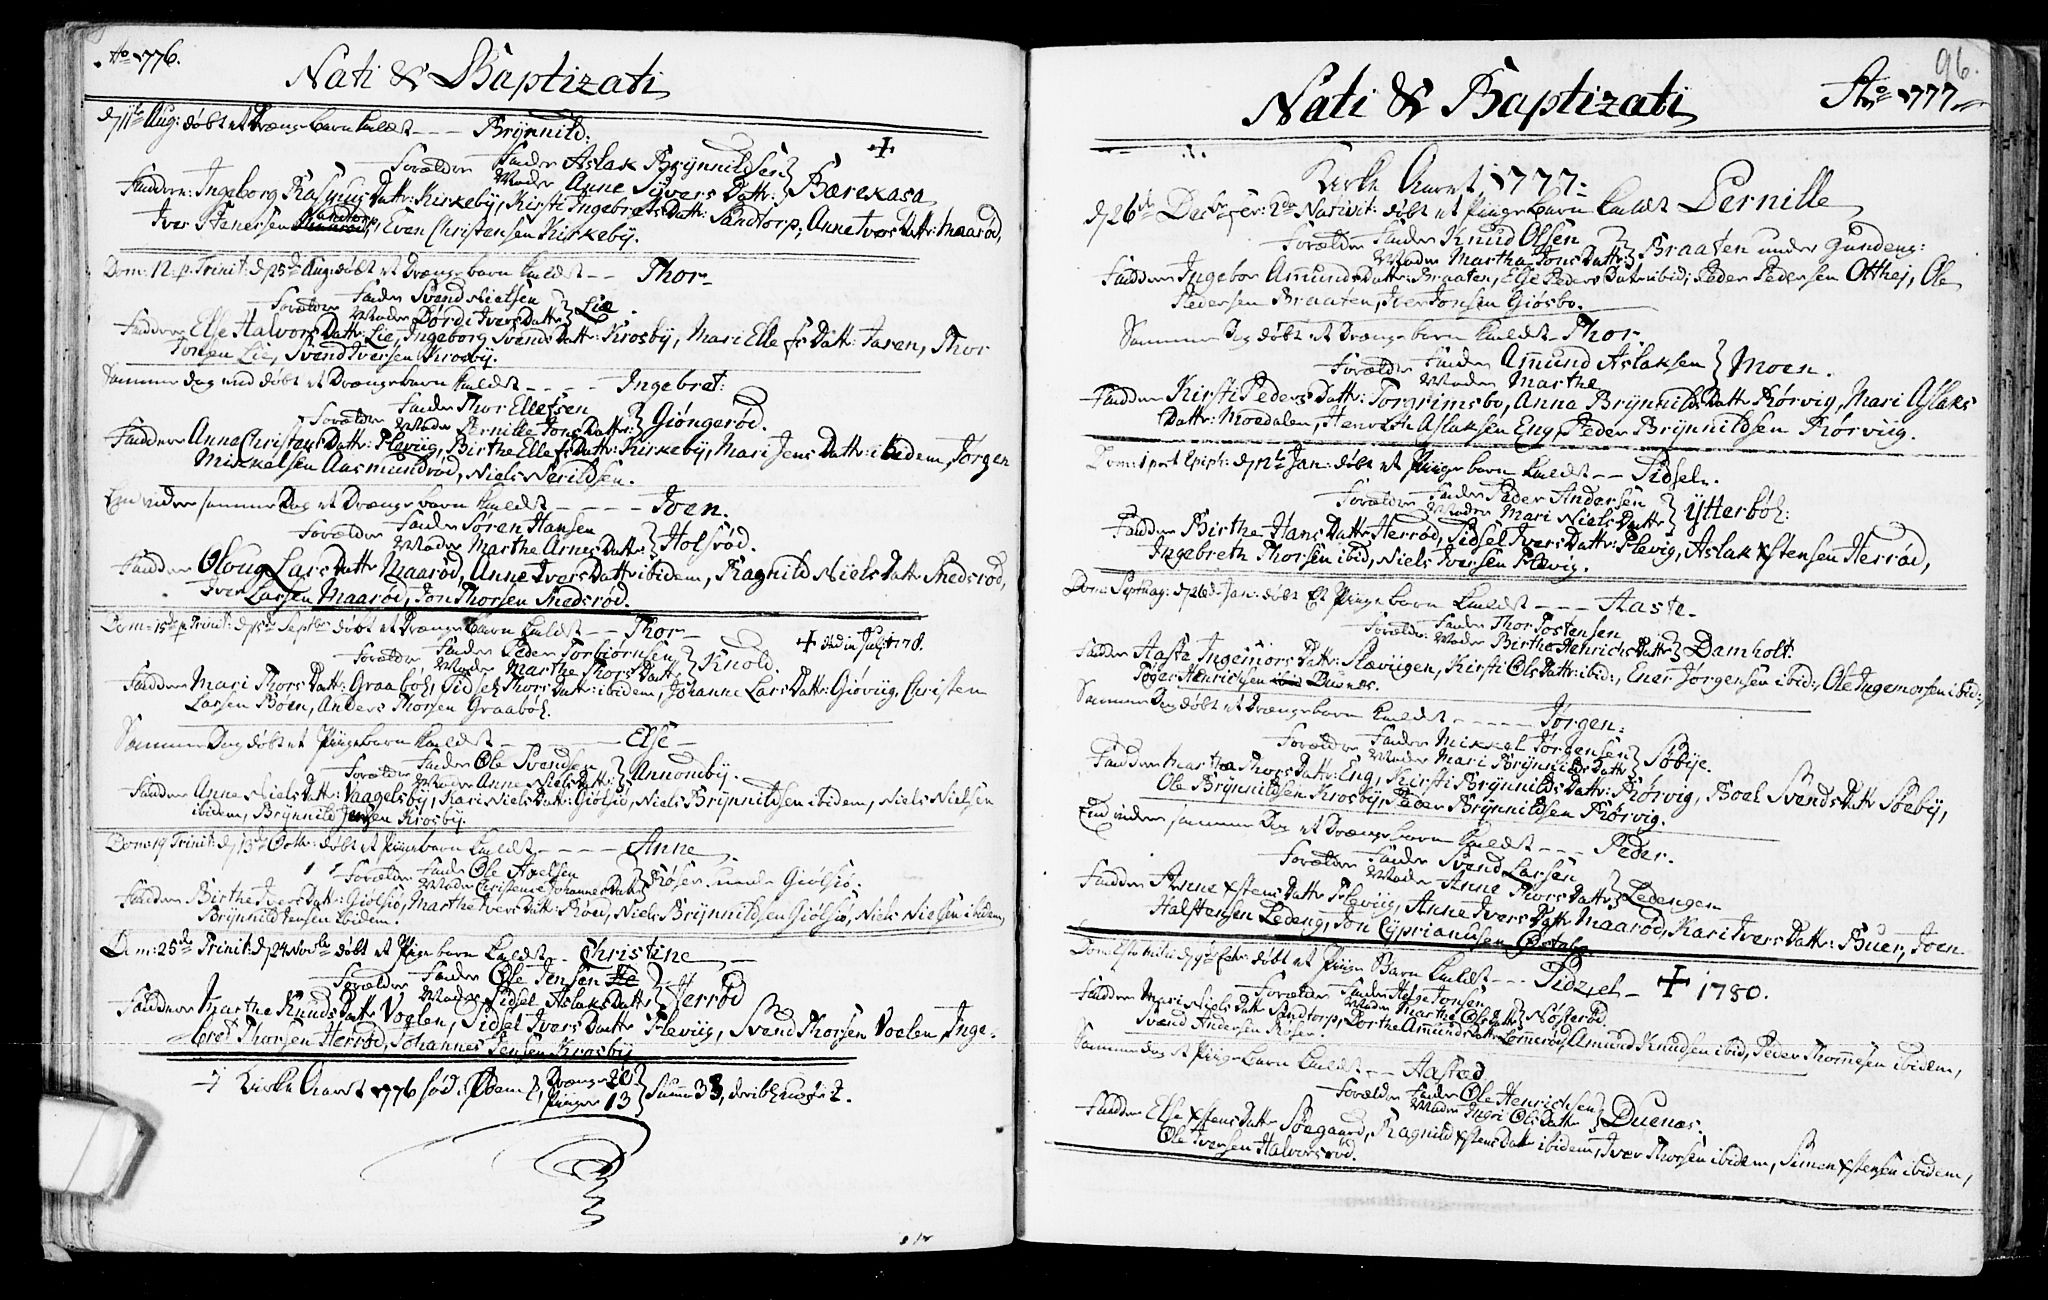 Ao 1776.
Nati & Baptizati
d 11te Aug: döbt et Drænge barn kaldet - - - Brÿnnild.
Forældre Fader Aslak Brÿnnildsen
Moder Anne Sÿvers Datt: } Bærekasa +
Faddere: Ingeborg Rasmus Datt: Kirkebÿ, Kirsti Ingebrets Datt: Sandtorp, Anne Ivers Datt: Maaröd,
Iver Stenersen Sandtorp, Even Christensen Kirkebÿ.
Dom: 12. p. Trinit: d 25de Aug: döbt et Drænge barn kaldet - - Thor -
Forældre Fader Svend Nielsen
Moder Dørdi Ivers Datter } Lie.
Faddere Else Halvors Datt: Lie, Ingeborg Svends Datt: Krosbÿ, Mari Ellefs Datt: Jaren, Thor
Jonsen Lie, Svend Iversen Krosbÿ.
Samme dag end döbt et Drænge barn kaldet - - - - Ingebret:
Forældre Fader Thor Ellefsen
Moder Pernille Jons Datter: } Giöngeröd.
Faddere Anna Christens Datt: Plaviig, Birthe Ellefs Datt: Kirkebÿ, Mari Jens Datt: ibidem, Jörgen
Mikkelsen Aasmundröd, Niels Nerildsen.
End videre samme Dag et Drænge barn kaldet - - - - Joen.
Forældre Fader Sören Hansen
Moder Marthe Arnes Datter } Holsröd.
Faddere Oloug Lars Datter Maaröd, Anne Ivers Datter ibidem, Ragnild Niels Datter Snedsröd,
Iver Larsen Maaröd, Jon Thorsen Snedsröd.
Dom: 15de p. Trinit: d 15de Septbr döbt et Drænge barn kaldet - - Thor -
Forældre Fader Peder Torbiörnsen
Moder Marthe Thors Datt: } Knold. + död in Julj 1778.
Faddere Mari Thors Datt: Graaböl, Sidsel Thors Datt: ibidem, Johanne Lars Datt: Giöviig, Christen
Larsen Böen, Anders Thorsen Graaböl.
Samme Dag döbt et Piige barn kaldet - - - Else -
Forældre Fader Ole Svendsen
Moder Anne Niels Datt: } Annomby.
Faddere Anne Niels Datt: Vaagelsbÿ, Kari Niels Datt: Giölsiö, Niels Brÿnnildsen ibidem, Niels Nielsen
ibidem, Brÿnnild Jensen Krosbÿ.
Dom: 19 Trinit: d 13de Octbr: döbt et Piige barn kaldet - - - - Anne
Forældre Fader Ole Axelsen
Moder Christence Johannes Datt: } Röser under Giölsiö.
Faddere Birthe Ivers Datt: Giölsiö, Marthe Ivers Datt: Röed, Niels Brÿnnildsen Giölsiö, Niels Nielsen ibidem,
Brÿnnild Jensen ibidem.
Dom: 25de Trinit: d 24 Novbr döbt et Piige barn kaldet - Christine -
Forældre Fader Ole Jensen
Moder Sidsel Aslaks Datter } Herröd
Faddere Marthe Knuds Datter Voelen, Sidsel Ivers Datter Plaviig, Svend Thorsen Voelen, Inge-
bret Thorsen Herröd, Johannes Jensen Krosbÿ
I Kirke Aaret 1776 föd: Drenge 20
Piiger 13 } Summa 33,
96.
Nati & Baptizati
Ao 1777
Kirke Aaret 1777.
d 26de Decbr Fer: 2da Nativit: döbt et Piige barn kaldet Pernille
Forældre Fader Knud Olsen
Moder Martha Jons Datter } Braaten under Gundeng:
Faddere Ingebor Amunds Datter Braaten, Else Peders Datter ibid; Peder Pedersen Otthej, Ole
Pedersen Braaten, Iver Jonsen Giösbo.
Samme Dag döbt et Drænge barn kaldet Thor.
Forældre Fader Amund Aslaksen
Moder Marthe } Moen.
Faddere Kirsti Peders Datt: Torgrimsbo, Anna Brÿnnilds Datt: Rörvig, Mari Aslaks
Datt: Moedalen, Henrich Aslaksen Eng, Peder Brÿnnildsen Rörviig.
Dom: 1 post Epiph: d 12te Jan: döbt et Piige barn kaldet - - Sidsel.
Forældre Fader Peder Andersen
Moder Mari Niels Datter } Ytterböl:
Faddere Birthe Hans Datter Herröd, Sidsel Ivers Datter: Plevig, Aslak Xstensen Herröd,
Ingebreth Thorsen ibid, Niels Iversen Plevig.
Dom: Septuag: d 26de Jan: döbt Et Piige barn kaldet - - - Aaste -
Forældre: Fader Thor Tostensen
Moder Birthe Henrichs Datter } Damholt.
Fadder Aaste Ingemors Datt: Slaviigen, Kirsti Ols Datt: ibid:, Ener Jörgensen ibid:, Ole Ingemorsen ibid:,
Töger Henrichsen Duenes.
Samme Dag döbt et Drænge barn kaldet - - - - - Jörgen:
Forældre Fader Mikkel Jörgensen
Moder Mari Brÿnnilds Datter } Söbÿe.
Faddere Martha Thors Datt: Eng, Kirsti Brÿnnilds Datt: Rörvig, Boel Svends Datter Söebÿ,
Ole Brÿnnildsen Krosbÿ, Peder Brÿnnildsen Rörvig.
End videre samme Dag et Drænge barn kaldet - - - Peder.
Forældre Fader Svend Larsen
Moder Anne Thors Datter } Ledengen
Faddere Anne Xstens Datter Plaviig, Anne Ivers Datter Maaröd, Kari Ivers Datter: Buer, Joen
Halstensen Ledeng, Jon Cÿprianusen
Dom: Esto Mihi d 9de Febr: döbt et Piige Barn kaldet - - - Sidzel - + 1780.
Forældre Fader Helge Jonsen
Moder Marthe Ols Datter } Nösteröd
Faddere Mari Niels Datter Sandtorp, Dorthe Amunds Datter Lomeröd, Amund Knudsen ibid, Peder Thomesen ibidem,
Svænd Andersen Röser.
Samme dag et Piige barn kaldet - - Aastæd
Forældre Fader Ole Henrichsen
Moder Ingri Ols Datter } Duenæs.
Faddere Else Xstens Datter Söegaard, Ragnild Xstens Datter ibidem, Iver Thorsen ibidem, Simen Xstensen ibidem,
Ole Iversen Halvorsröd.